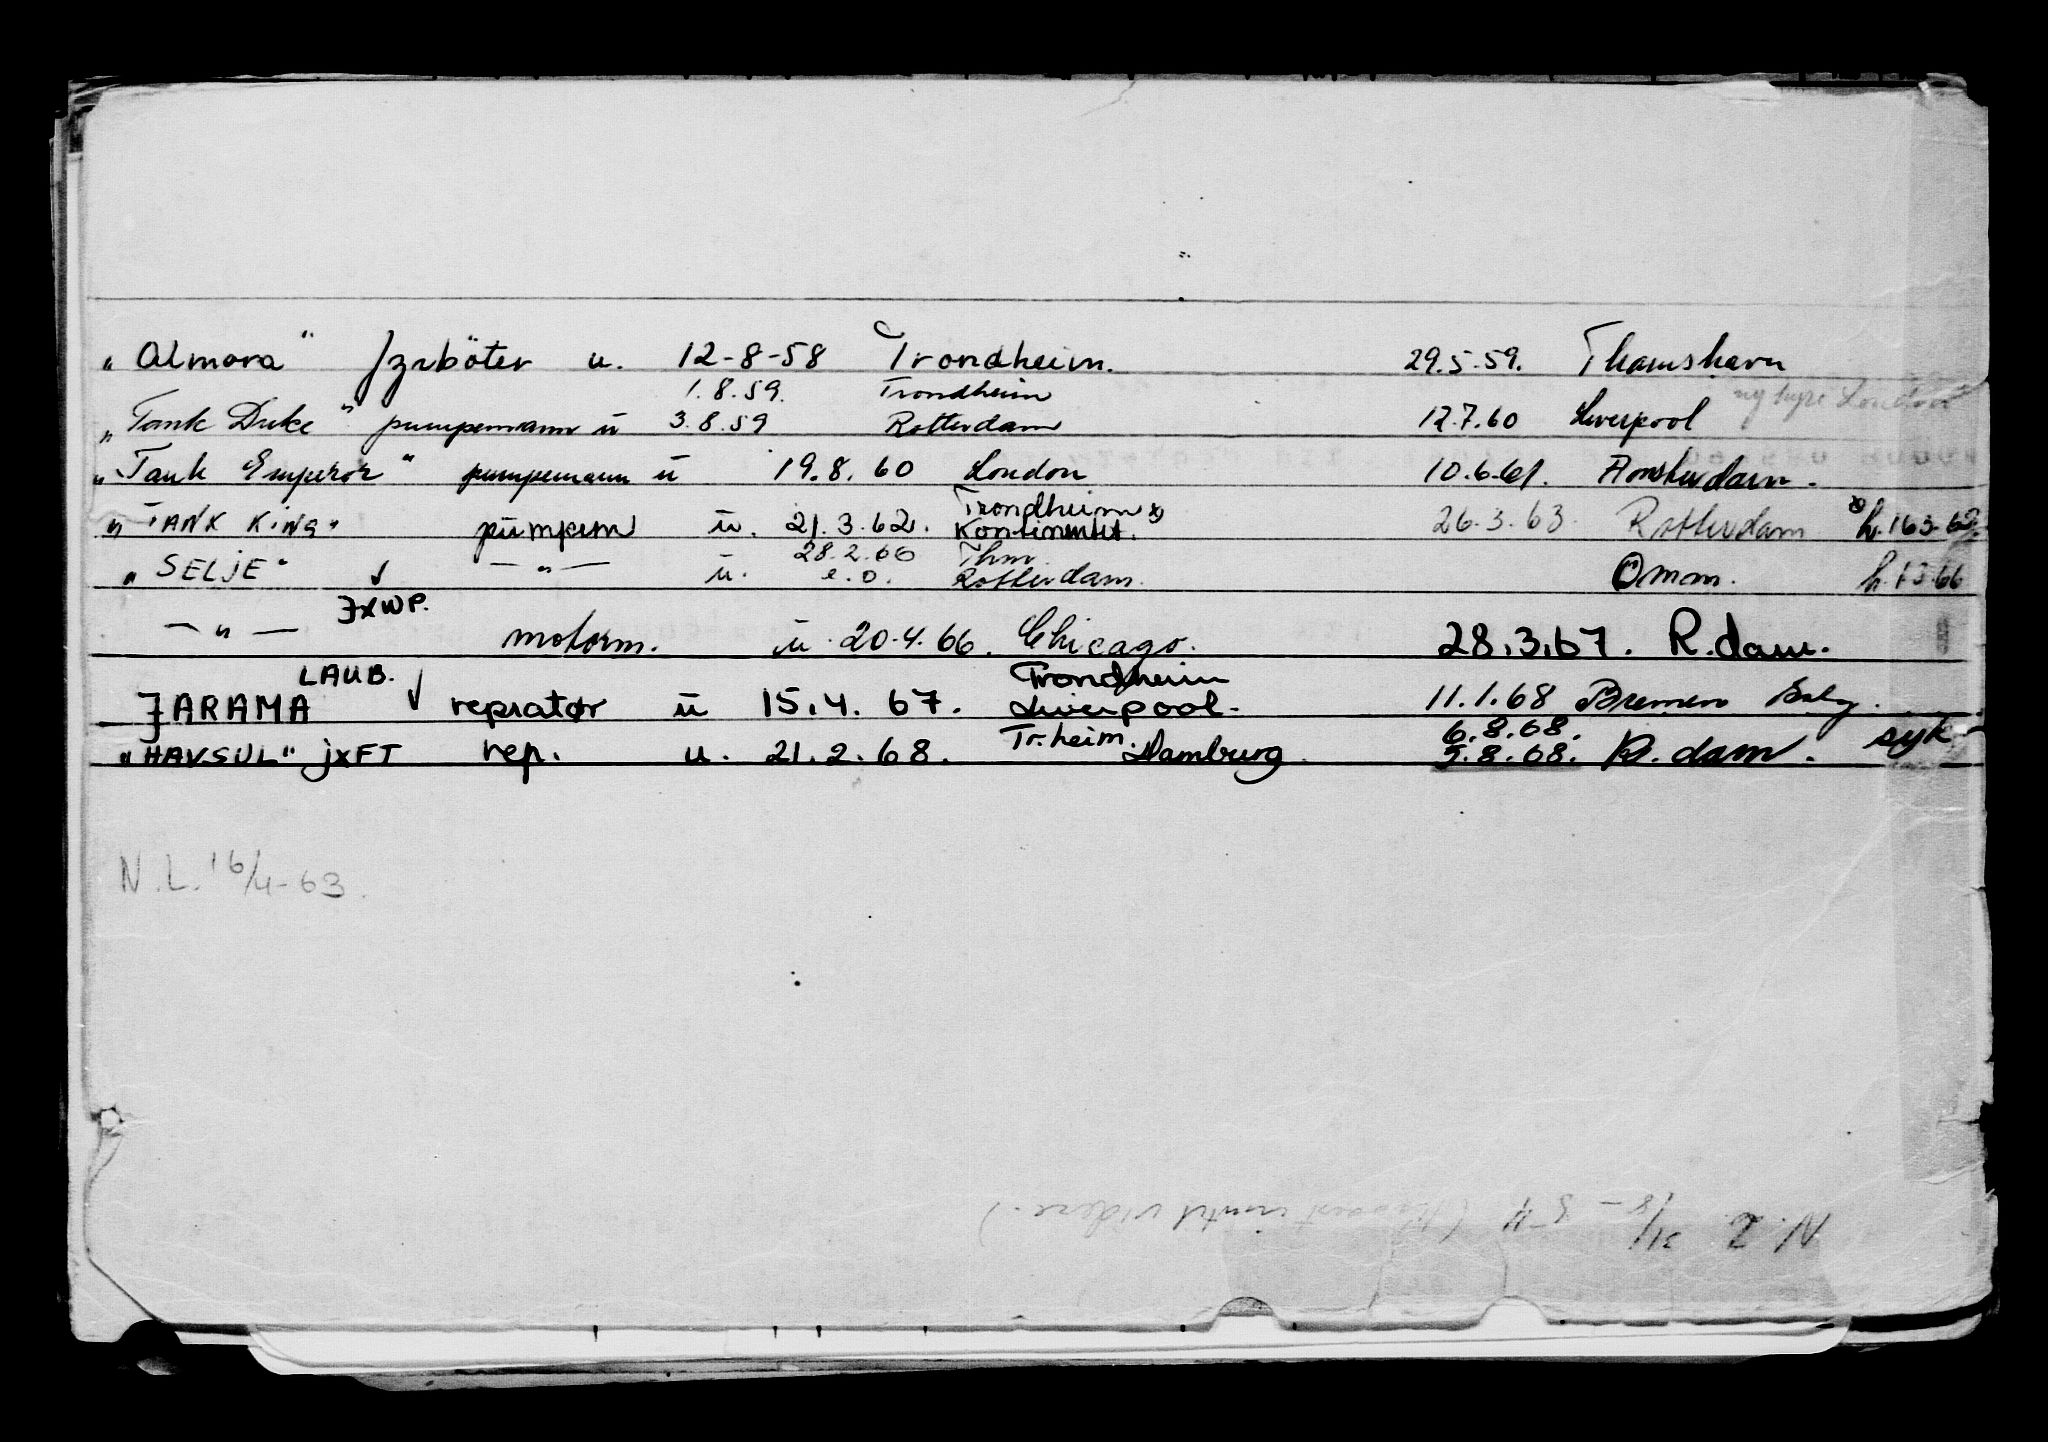 "Almora" fyrböter u. 12-8-58 Trondheim. 29.5.59. Thamshavn
1.8.59. Trondheim ny hyre London
"Tank Duke" pumpemann ū 3.8.59 Rotterdam 12.7.60 Liverpool
"Tank Emperor" pumpemann ū 19.8.60 London 10.6.61. Amsterdam.
Trondheim x)
"TANK KING" pumpem ū. 21.3.62. Kontinentet. 26.3.63. Rotterdam x) h. 163-62.
28.2.66 Thm.
"SELJE" — " — ū. e.o. Rotterdam. Omm. h. 1.3.66
JXWP.
— " — motorm. ū. 20.4.66. Chicago. 28.3.67. R.dam.
LAUB. Trondheim
JARAMA repratør ū 15.4.67. Liverpool. 11.1.68 Bremen
Tr.heim. 6.8.68. syk
"HAVSUL" jxFT rep. u. 21.2.68. Hamburg. 9.8.68. R.dam.
N.L. 16/4-63.
N.L. 31/8-54 inntil videre.)